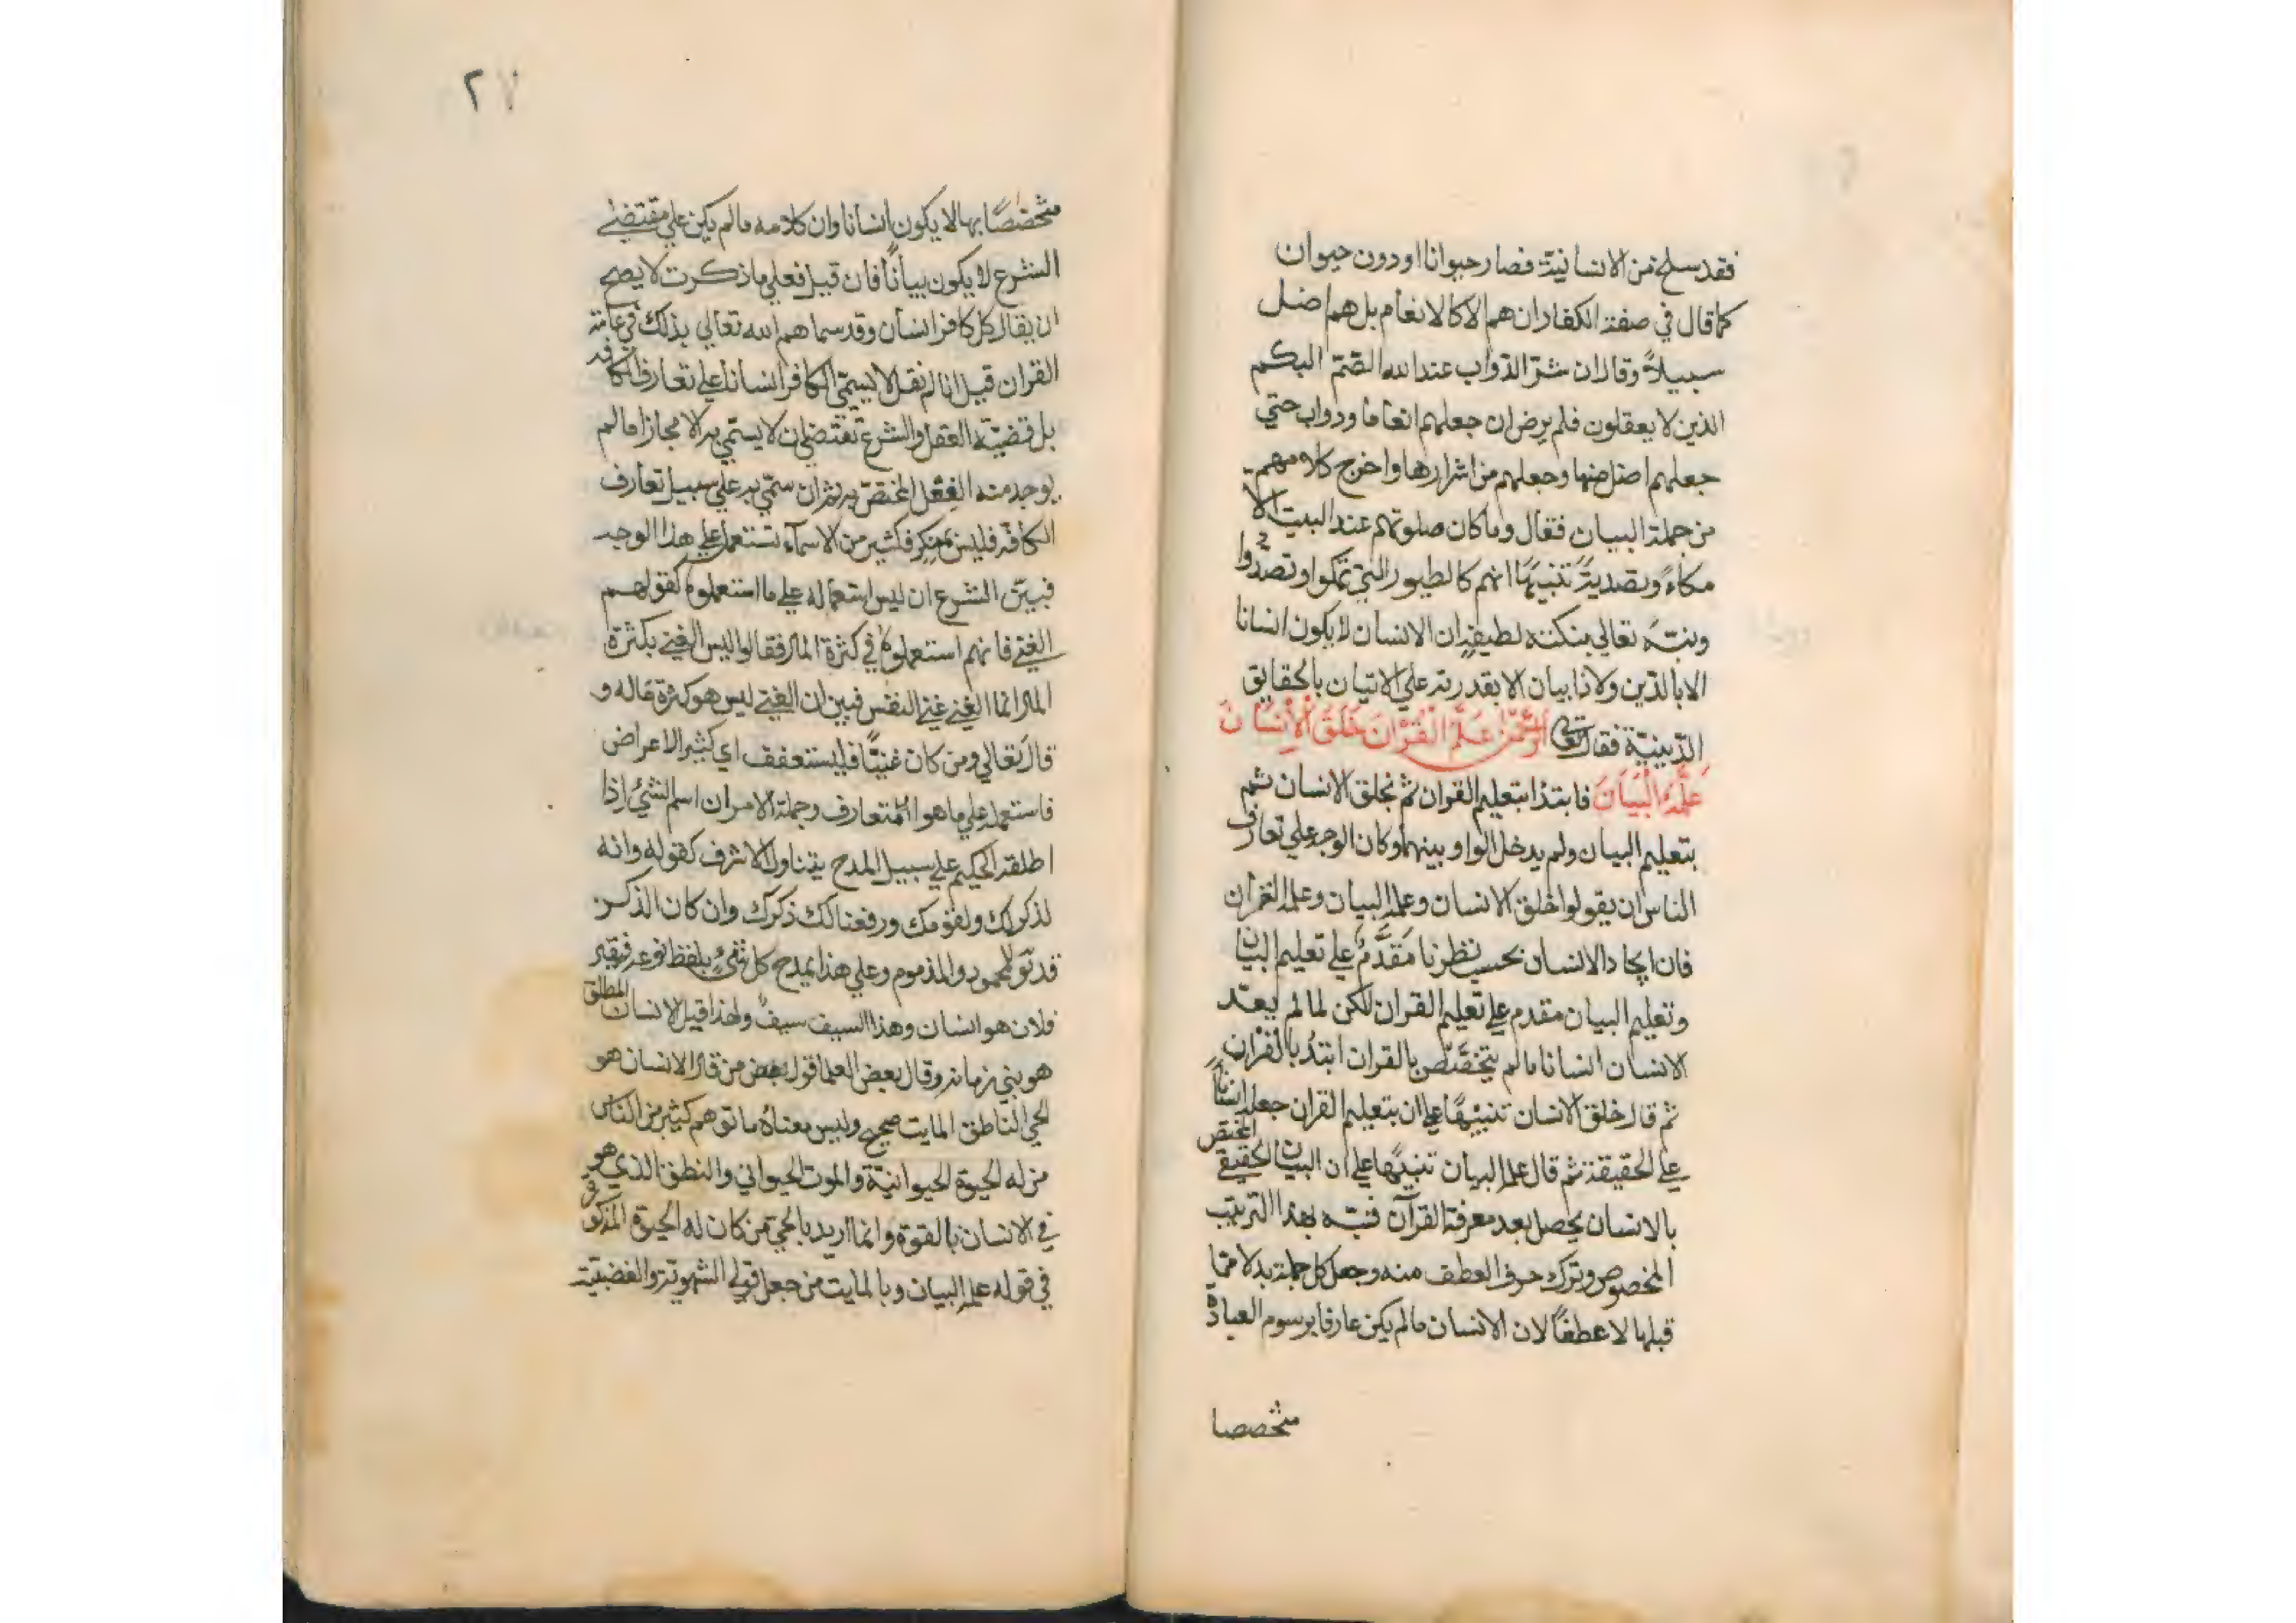 فقد سلخ من الانسانية فصار حيوانا او دون حيوان
كما قال في صفة الكفار ان هم الا كالانعام بل هم اضل
سبيلاً وقال ان شرّ الدّواب عند الله الصّمّ البكم
الذين لا يعقلون فلم يرض ان جعلهم انعاما ودواب حتي
جعلهم اضل منها وجعلهم من اشرارها واخرج كلامهم
من جملة البيان فقال وما كان صلوتهم عند البيت الا
مكاءً وتصديةً تنبيهًا انهم كالطيور التي تمكوا وتصدّوا
ونبّه تعالي بنكتة لطيفة ان الانسان لا يكون انسانا
الا بالدّين ولا ذا بيان الا بقدرته علي الاتيان بالحقايق
الدّينيّة فقال تعالى الرَّحْمٰنُ عَلَّمَ الْقُرْآنَ خَلَقَ الْاِنْسَانَ
عَلَّمَهُ الْبَيَانَ فابتدا بتعليم القران ثم بخلق الانسان ثم
بتعليم البيان ولم يدخل الواو بينهما وكان الوجه علي تعارف
الناس ان يقولوا خلق الانسان وعلمه البيان وعلمه القرآن
فان ايجاد الانسان بحسب نظرنا مَقَدَّمٌ علي تعليم البيان
وتعليم البيان مقدم علي تعليم القران لكن لما لم يعدّ
الانسان انسانا مالم يتخصَّصْ بالقران ابتدُ بالقرآن
ثم قال خلق الانسان تنبيهًا علي ان بتعليم القران جعله انسانًا
علي الحقيقة ثم قال علمه البيان تنبيهًا علي ان البيان الحقيقي المختص
بالانسان يحصل بعد معرفة القرآن فنبّه بهذا الترتيب
المخصوص وترك حرف العطف منه وجعل كل جملة بدلا ممّا
قبلها لا عطفًا لان الانسان مالم يكن عارفا برسوم العبادة
متخصصا
٢٧
متخصّصًا بها لا يكون انسانا وان كلامه مالم يكن علي مقتضي
الشرع لا يكون بيانًا فان قيل فعلي ما ذكرت لا يصح
ان يقال كل كافر انسان وقد سماهم الله تعالي بذلك في عامة
القران قيل انا لم نقل لا يسمّي الكافر انسانا علي تعارف الكافة
بل قضيّة العقل والشرع تقتضي ان لا يسمّي به الا مجازا مالم
يوجد منه الفعل المختصّ به ثم ان سمّي به علي سبيل تعارف
الكافة فليس بمنكر فكثير من الاسمآء تستعمل علي هذا الوجه
فبيّن الشرع ان ليس استعماله علي ما استعملوه كقولهم
الغني فانهم استعملوه في كثرة المال فقالوا ليس الغني بكثرة
المال انما الغني غني النفس فبين ان الغني ليس هو كثرة ماله و
قال تعالي ومن كان غنيًّا فليستعفف اي كثير الاعراض
فاستعمله علي ما هو المتعارف وجملة الامر ان اسم الشيْ اذا
اطلقه الحكيم علي سبيل المدح يتناول الاشرف كقوله وانه
لذكر لك ولقومك ورفعنا لك ذكرك وان كان الذكر
قد للمحمود والمذموم وعلي هذا يمدح كل شيْ بلفظ نوعه فيقال
فلان هو انسان وهذا السيف سيفٌ ولهذا قيل الانسان المطلق
هو بني زمانه وقال بعض العلما قول من قال الانسان هو
الحي الناطق المايت صحيح وليس معناه ما توهم كثير من الناس
من له الحيوة الحيوانيّة والموت الحيواني والنطق الذي هو
في الانسان بالقوة وانما اريد بالحي من كان له الحيوة المذكورة
في قوله علمه البيان وبالمايت من جعل قوله الشهوتة والغضبيّة